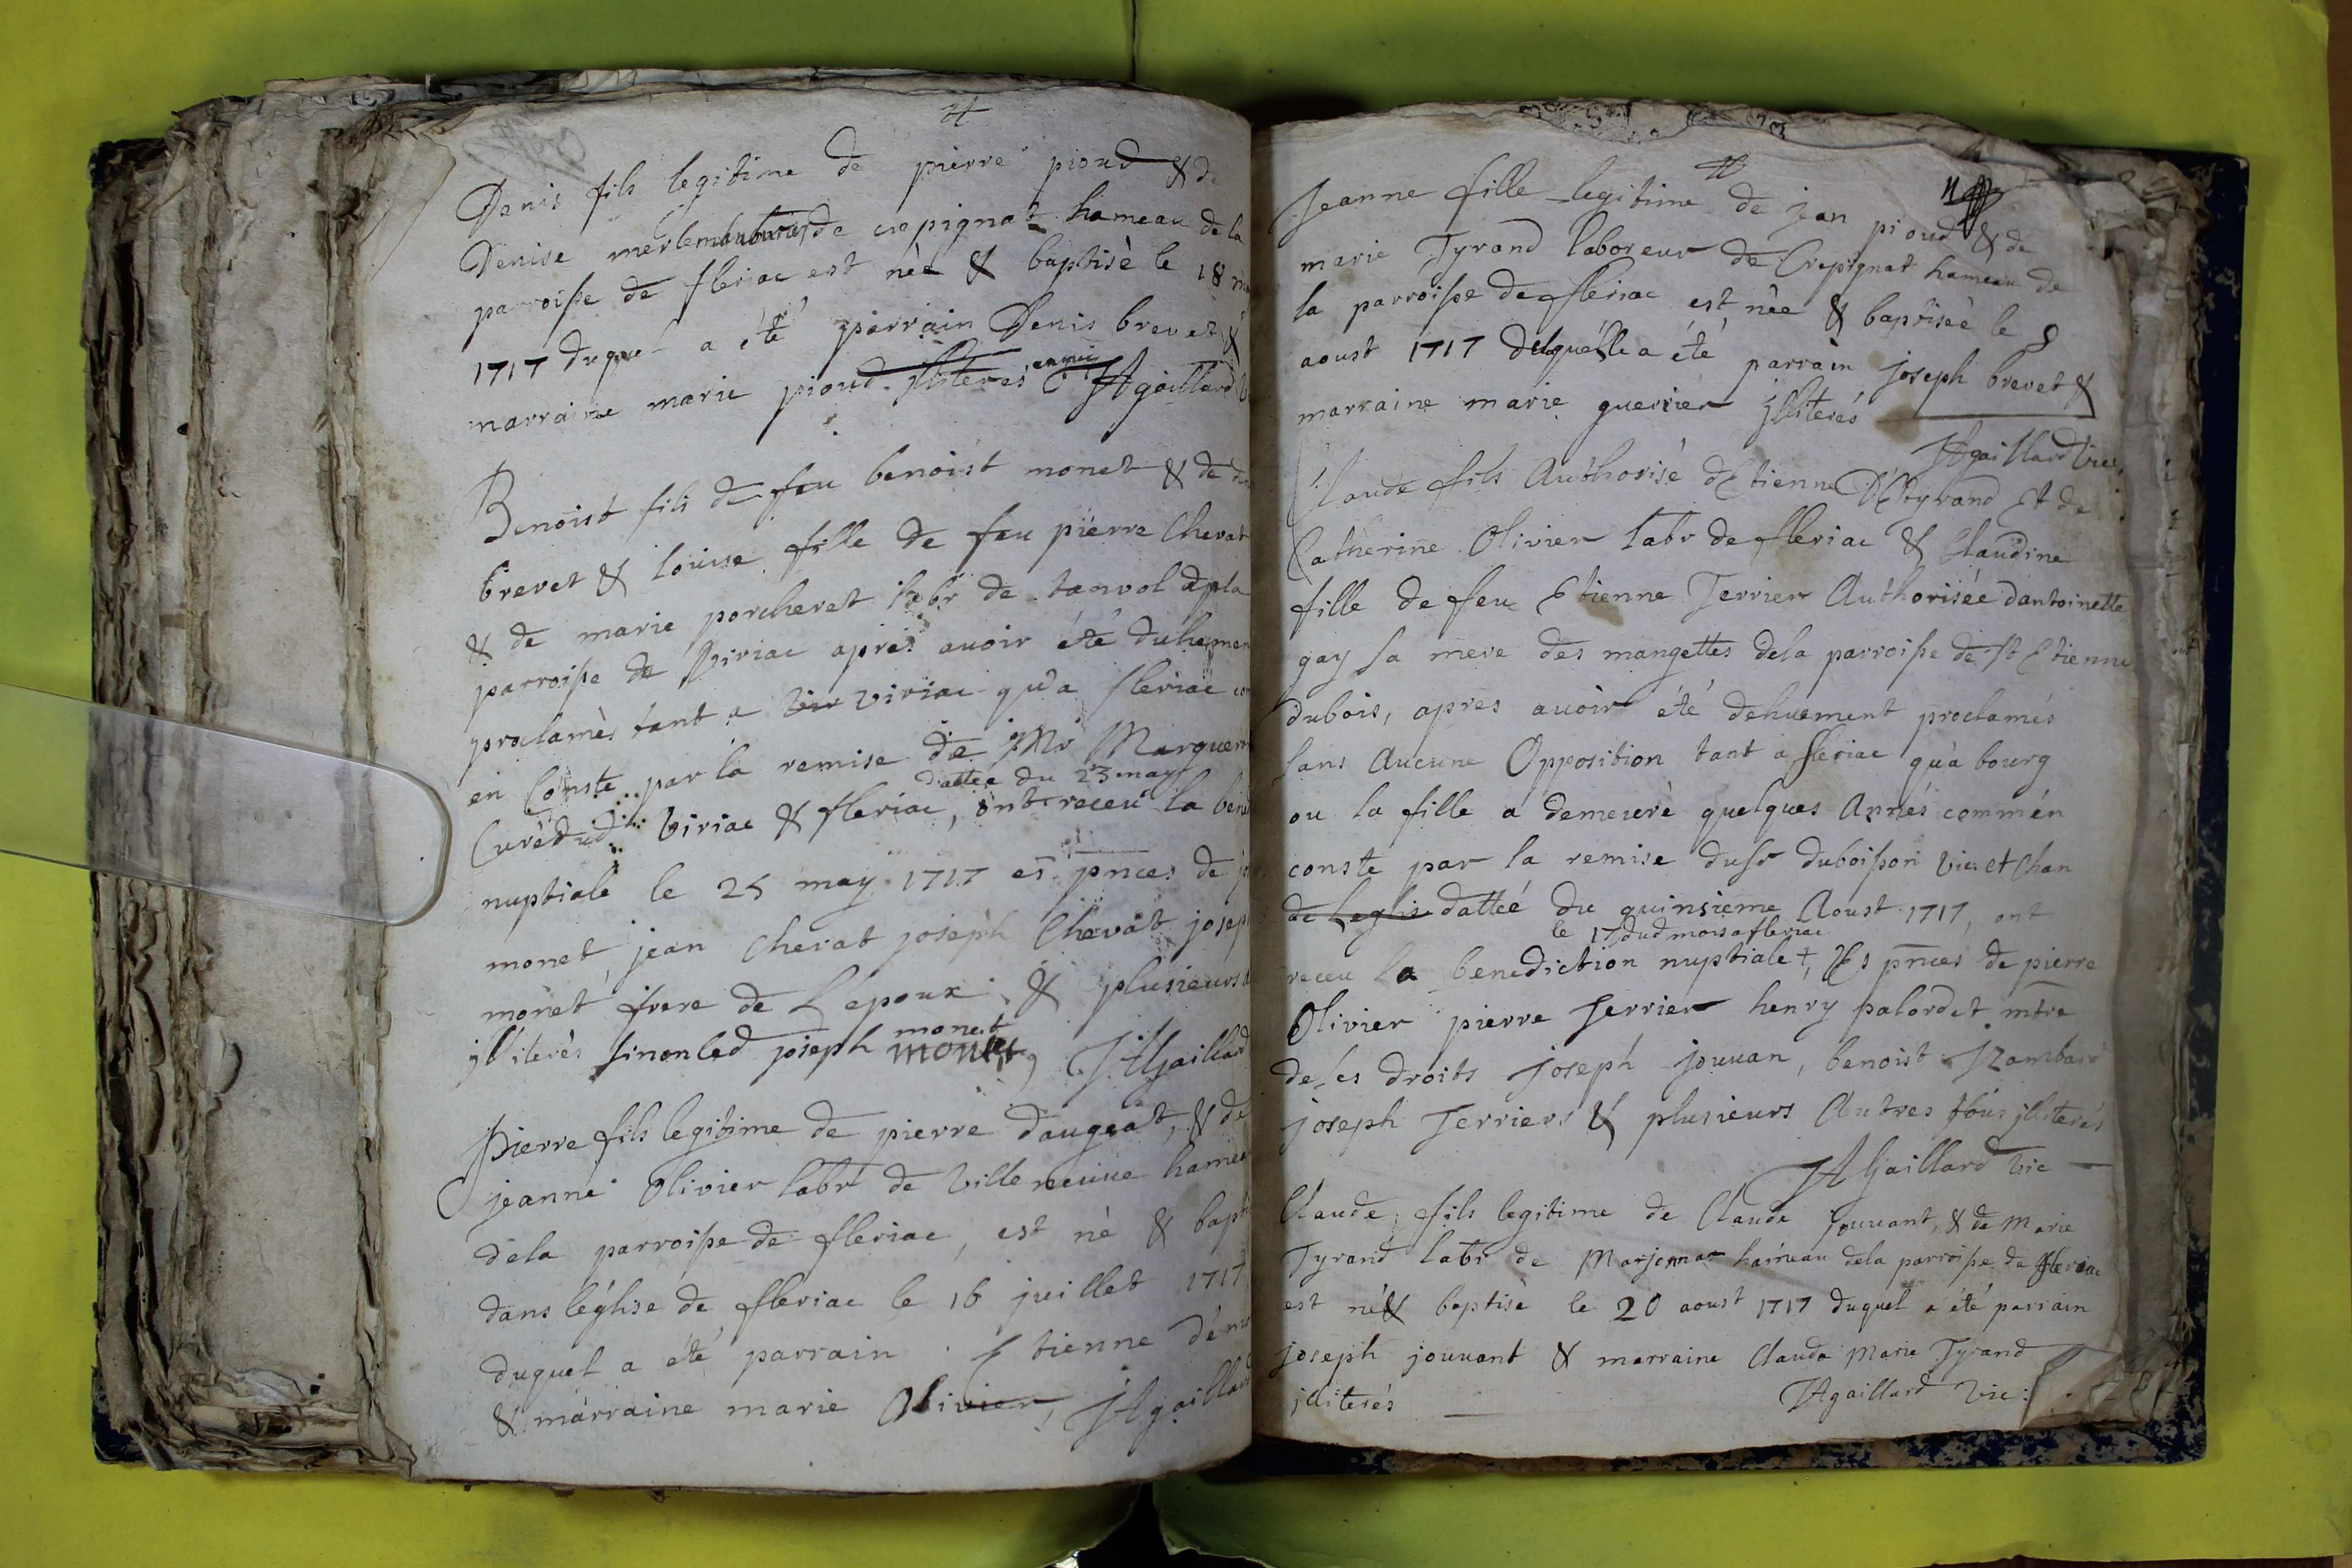 Denis fils legitime de pierre pioud & de
Denise merle de crepignat hameau de la
parroisse de fleriac est nèe & baptisè le 18
1717 duquel a été parrain Denis brevet &
marraine marie pioud illiterés enquis JAgaillard
Benoist fils de feu benoist monet & de
brevet & louise fille de feu pierre Chevat
& de marie porcheret labr de tanvol dela
parroisse de viriac apres avoir été duhemen
proclamès tant a viriac qu'a fleriac
en Conste par la remise de Mr Marguer
dattée du 23 may
Curé dud. viriac & fleriac, ont receu la
nuptiale le 25 may 1717 es pnces de
monet, jean chevat joseph Chevat josep
monet frere de L'epoux & plusieurs
illiterès sinon led joseph monet
monet, JAGaillard
Pierre fils legitime de pierre daugeat, & de
jeanne Olivier labr de Ville neuve hamea
dela parroisse de fleriac, est né & bapti
dans léglise de fleriac le 16 juillet 1717
duquel a été parrain Etienne
& marraine marie Olivier, JAgaillard
11
Jeanne fille legitime de jean pioud & de
marie Tyrand laboreur de Crepignat hameau de
la parroisse de fleriac est née & baptiseè le 8
aoust 1717 delquélle a été parrain joseph brevet &
marraine marie guerrier illiterés
JAgaillard vic
Claude fils Authorisé dEtienne DEtyrand Et de
Catherine Olivier labr de fleriac & Claudine
fille de feu Etienne Terrier Authorisée dantoinette
gay sa mere des mangettes dela parroisse de st Etienne
dubois, apres avoir été dehuement proclamés
sans Aucune Opposition tant a fleriac qu'à bourg
ou la fille a demeuré quelques Annés commén
conste par la remise dusr duboisson vic et Chan
de Leglis dattéé du quinsieme Aoust 1717, ont
le 17 dud mois a fleriac
receu la benediction nuptiale +, Es pnces de pierre
Olivier pierre Terrier henry palordet mtre
de ses droits joseph jouvan, benoist
joseph Terriers & plusieurs Autres tous illiterés
JAGaillard vic
Claude, fils legitime de Claude jouvant, & de Marie
Tyrand labr de hameau dela parroisse de fleriac
est né & baptisè le 20 aoust 1717 duquel a été parrain
joseph jouvant & marraine Clauda Marie Tyrand
illiterés
JAgaillard Vic: